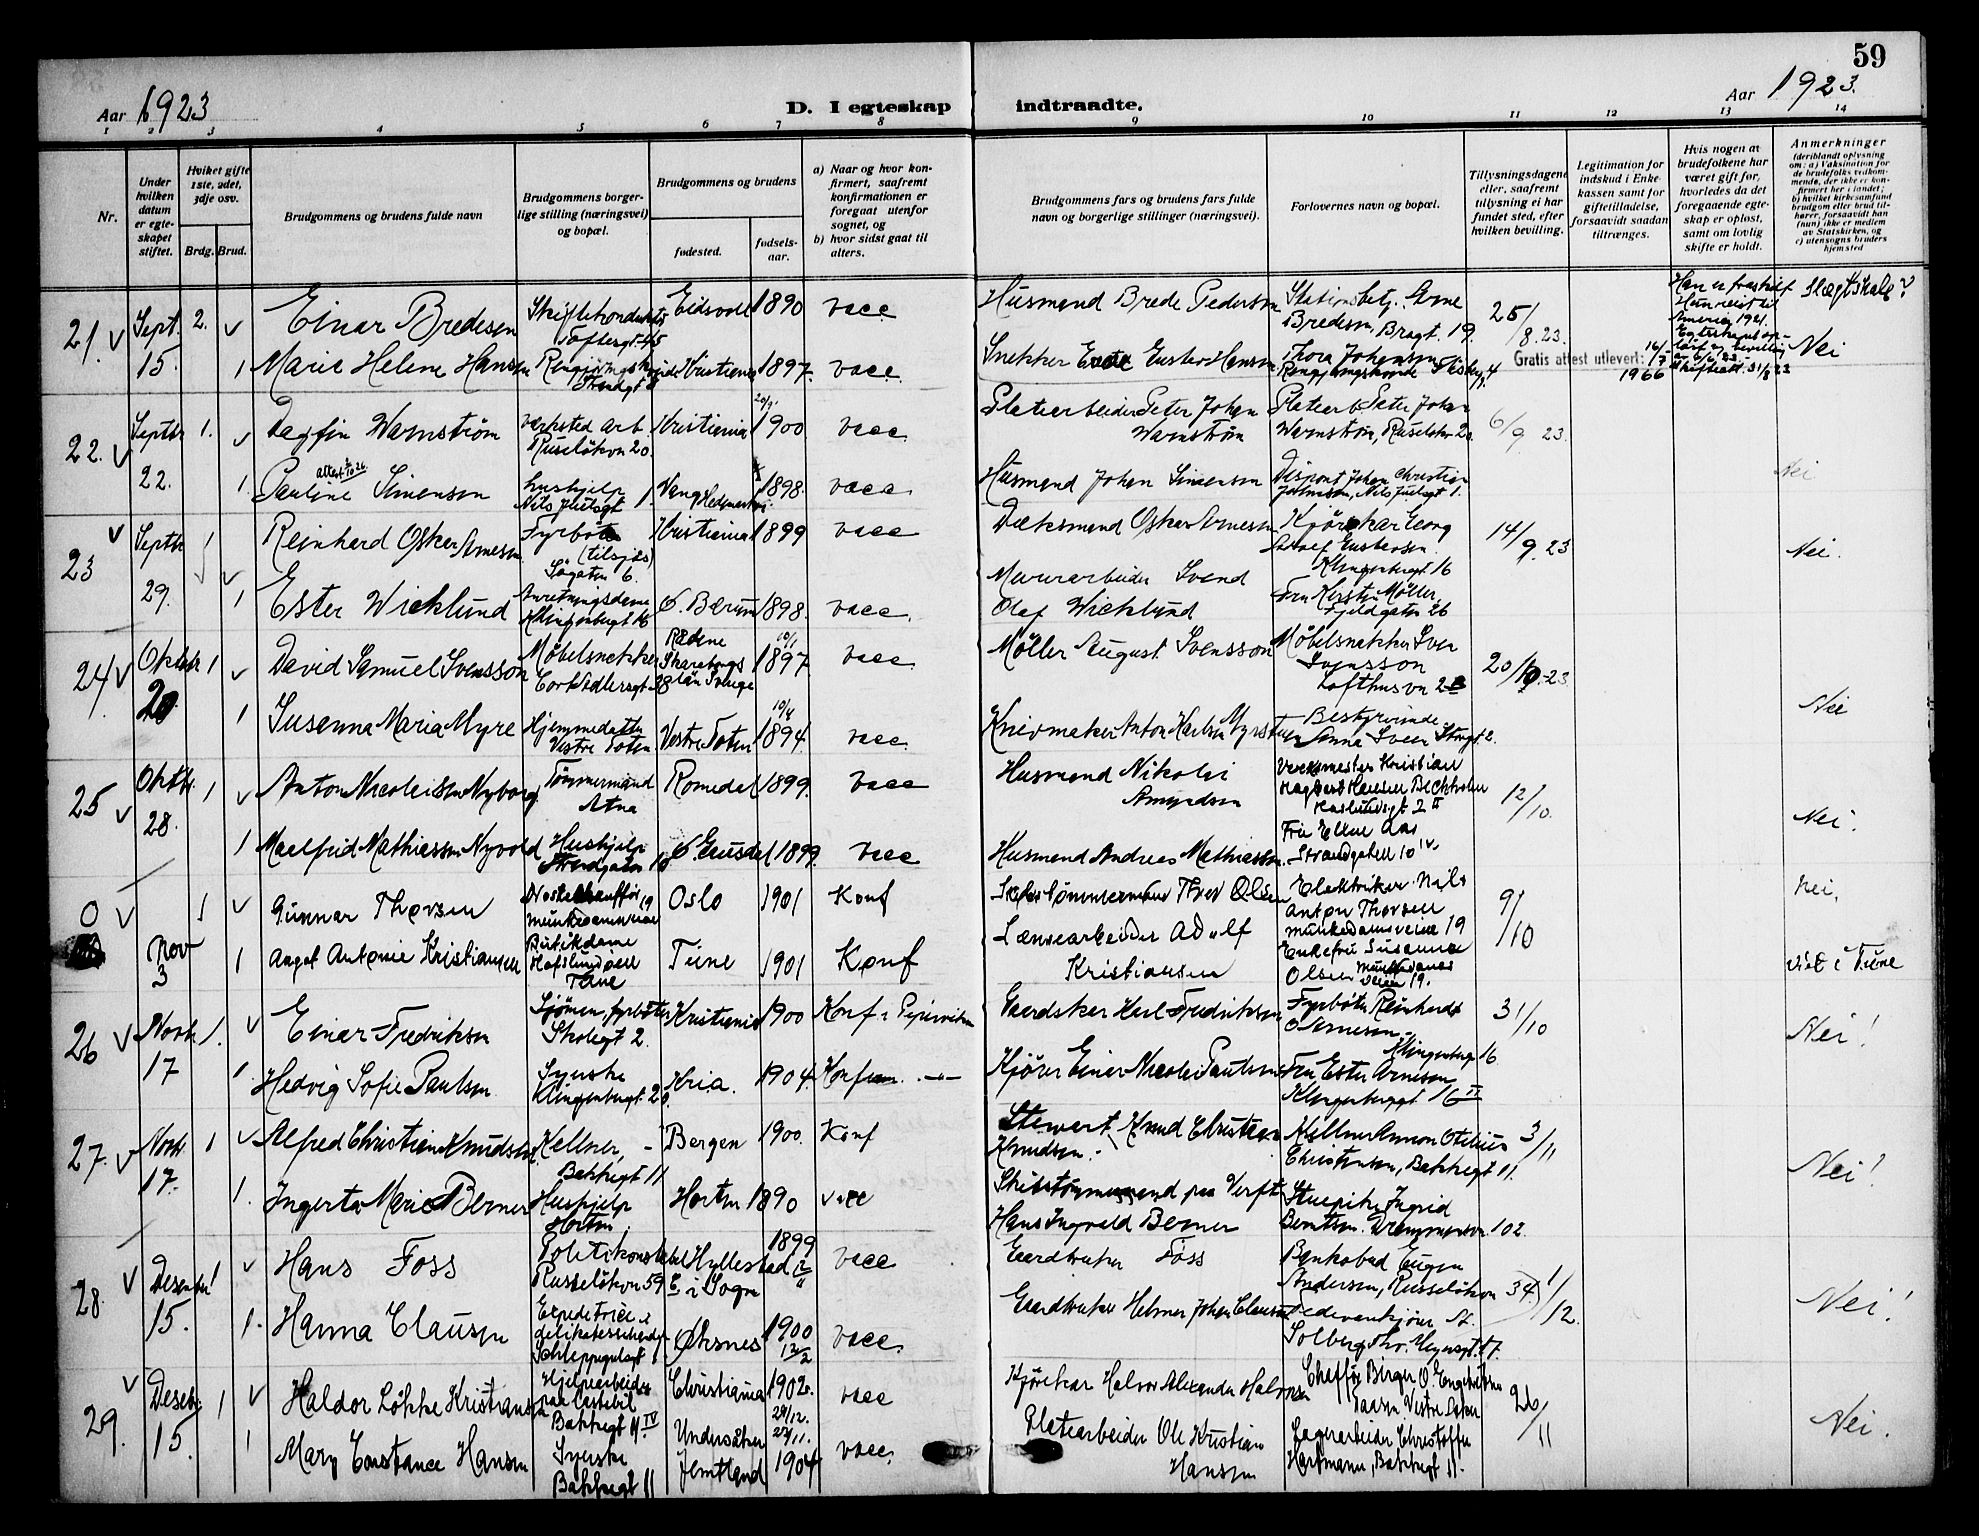 59
Aar 1923
D. I egteskap indtraadte.
Aar 1923.
1 2 3 4 5 6 7 8 9 10 11 12 13 14
Nr.
Under hvilken datum er egteskapet stiftet.
Hvilket gifte 1ste, 2det, 3dje osv.
Brdg. Brud.
Brudgommens og brudens fulde navn
Brudgommens borgerlige stilling (næringsvei) og bopæl.
Brudgommens og brudens
fødested.
fødselsaar.
a) Naar og hvor konfirmert, saafremt konfirmationen er foregaat utenfor sognet, og
b) hvor sidst gaat til alters.
Brudgommens fars og brudens fars fulde navn og borgerlige stillinger (næringsvei).
Forlovernes navn og bopæl.
Tillysningsdagene eller, saafremt tillysning ei har fundet sted, efter hvilken bevilling.
Legitimation for indskud i Enkekassen samt for giftetilladelse, forsaavidt saadan tiltrænges.
Hvis nogen av brudefolkene har været gift før, hvorledes da det foregaaende egteskap er opløst, samt om lovlig skifte er holdt.
Anmerkninger
(deriblandt oplysning om: a) Vaksination for de brudefolks vedkommende, der ikke er konfirmert her i landet; b) hvilket kirkesamfund brudgom eller brud tilhører, forsaavidt han (hun) ikke er medlem av Statskirken, og c) utensogns bruders hjemsted
21. Sept. 15. 2. Einar Bredesen Toftesgt. 45 Eidsvold 1890 vacc. Husmand Brede Pedersen Stationsbetj. Arne Bredesen, Bragt. 19. 25/8 23.
1 Marie Helene Hansen Kristiania 1897. vacc. Snekker Gustav Hansen Thora Johansen Gratis attest utlevert: 16/7 1966 Nei
22. Septbr 22. 1. Dagfin Warnstrøm Verksted arb. Ruseløkvn 20. Kristiania 20/9 1900 vacc. Platearbeider Peter Johan Warnstrøm Platearb. Peter Johan Warnstrøm, Ruseløkv 20. 6/9 23.
1. Pauline Simensen hushjelp Nils Juelsgt 1. Vang Hedemarken 1898. vacc. Husmand Johan Simensen Dispont Johan Christian Johnsen, Nils Juelsgt 1. Nei
23 Septbr 29. 1 Reinhard Oskar Arnesen Fyrbøter (tilsjøs) Søgaten 6. Kristiania 1899 vacc Dæksmand Oskar Arnesen Kjørekar Georg Adolf Gustavsen Klingenbergt 16 14/9. 23 Nei.
1 Ester Wicklund Anretningsdame Klingenbergt 16 Ø. Bærum 1898. vacc. Murerarbeider Svend Olaf Wicklund Fru Kirsten Møller, Fjeldgaten 26
24 Oktbr 20. 1 David Samuel Svensson Møbelsnekker Cort Adlersgt. 28 Rådene Skaraborgs län Sverige 10/1 1897 vacc. Møller August Svensson Møbelsnekker Sven Svensson Lofthusvn 2 20/10 23
1 Susanna Maria Myre Hjemmedatter Vestre Toten Vestre Toten 10/4 1894. vacc. Knivmaker Anton Karlsen Bestyrerinde Anna Sveen Nei
25 Oktbr. 28. 1 Anton Nicolaisen Nyborg Tømmermand Atna Romedal 1899. vacc Husmand Nikolai Amundsen Verksmester Kristian 12/10. Nei.
1 Maalfrid Mathiesen Nyvold Hushjelp Strandgaten 10 Ø. Gausdal 1899. vacc Husmand Andreas Mathiesen. Fru Ellen Aas Strandgaten 10 IV.
0 Nov 3 1 Gunnar Thorsen Munkedamsveien 19 Oslo 1901 Konf Tømmermand Thor Olsen Elektriker Nils Anton Thorsen Munkedamsveien 19 9/10 Nei.
1 Aagot Antonie Kristiansen Butikdame Hafslundsøen Tune Tune 1901 Konf Lænsearbeider Adolf Kristiansen Enkefru Susanna Olsen Munkedamsveien 19. viet i Tune
26 Novbr 17 1. Einar Fredriksen Sjømann, fyrbøter Skolegt 2. Kristiania 1900 Konf i Pipervikn Gaardskar Karl Fredriksen Fyrbøter Reinhardt O Arnesen Klingenbergt 16 31/10 Nei!
1. Hedvig Sofie Paulsen Syerske Klingenbergt 20. Kria. 1904. Konf Kjører Einar Nicolai Paulsen Fru Ester Arnesen Klingenberggt 16 IV
27. Novbr 17. 1 Alfred Christian Knudsen Kellner, Bakkegt 11 Bergen 1900. Konf Stewart Knud Christian Knudsen. Kellner Christensen, Bakkegt 11. 3/11 Nei!
1. Ingerta Marie Berner Hushjelp Horten Horten 1890 vacc Skibstømmermand paa Verft Hans Ingvald Berner Stuepike Ingrid Berntsen. Drammensvn 102.
28. Desember 15. 1 Hans Foss Politikonstabel Ruseløkvn 59 Hyllestad i Sogn 1899 vacc Gaardbruker Foss Bankobud Eugen Andersen, Ruseløkvn 34. 1/12. Nei!
1. Hanna Clausen Expeditrice i Schleppegrelsgt Øksnes 1900 12/2 vacc. Gaardbruker Helmer Johan Clausen
29. Desebr 15. 1 Haldor Løkke Kristiansen Hjelpearbeider paa lastebil Bakkegt 11. IV Christiania 1902. 28/12. vacc Kjørekar Halvor Alexander Halvorsen Chaffør Birger O. Engebretsen 26/11 Nei.
1 Mary Constance Hansen Syerske Bakkegt 11 Undersåker Jemtland 27/11. 1904 vacc. Platearbeider Ole Kristian Hansen Lagerarbeider Christoffer Hartmann, Bakkegt 11.